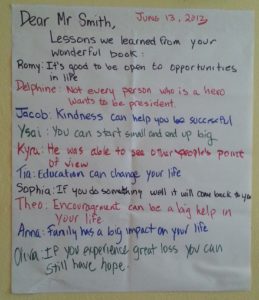 Dear Mr Smith, June 13, 2012
Lessons we learned from your
wonderful book:
Romy: It's good to be open to opportunities
in life
Delphine: Not every person who is a hero
wants to be president.
Jacob: Kindness can help you be successful
Ysai: You can start small and end up big
Kyra: He was able to see other people's point
of view
Tia: Education can change your life
Sophia: If you do something well it will come back to you
Theo: Encouragement can be a big help in
your life
Anna: Family has a big impact on your life
Olivia: If you experience great loss you can
still have hope